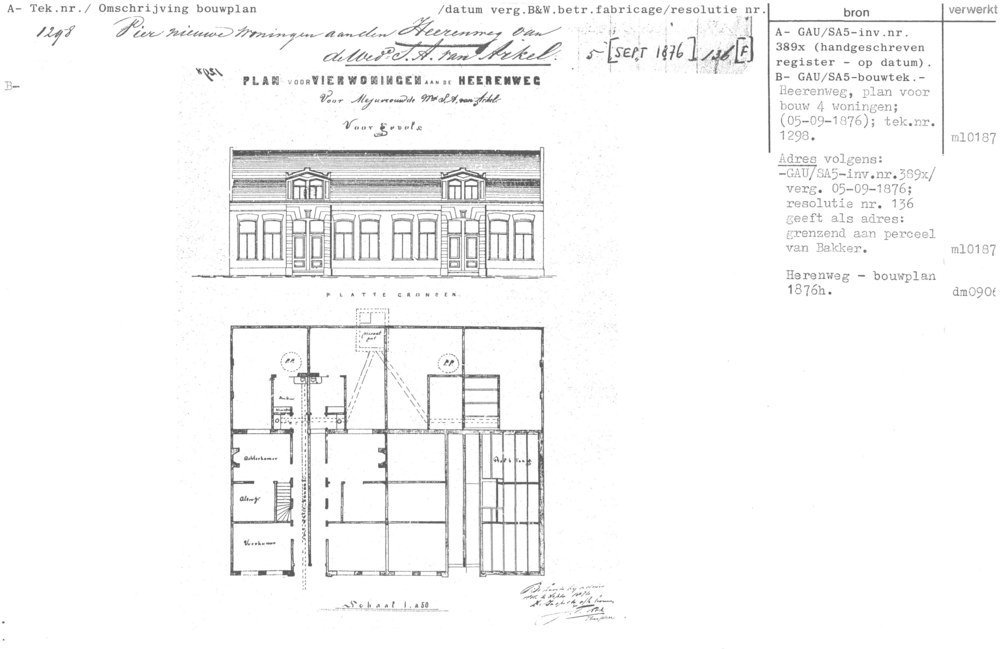 A- Tek.nr./ Omschrijving bouwplan /datum verg.B&W.betr.fabricage/resolutie nr.
bron
verwerkt
1298 Vier nieuwe woningen aan den Heerenweg van
de Wed. S. A. van Arkel.
5 [SEPT. 1876] 136 [F]
B-
1298
PLAN VOOR VIER WONINGEN AAN DE HEERENWEG
Voor Mejuvrouw de Wed S. A. van Arkel
Voor Gevels
PLATTE GRONDEN.
P.P.
P.P.
Achterkamer
Alcoof
Voorkamer
Schaal 1 a 50
A- GAU/SA5-inv.nr.
389x (handgeschreven
register - op datum).
B- GAU/SA5-bouwtek.-
Heerenweg, plan voor
bouw 4 woningen;
(05-09-1876); tek.nr.
1298. ml0187
Adres volgens:
-GAU/SA5-inv.nr.389x/
verg. 05-09-1876;
resolutie nr. 136
geeft als adres:
grenzend aan perceel
van Bakker. ml0187
Herenweg - bouwplan
1876h. dm0906